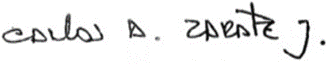 CARLOS A. ZARATE J.